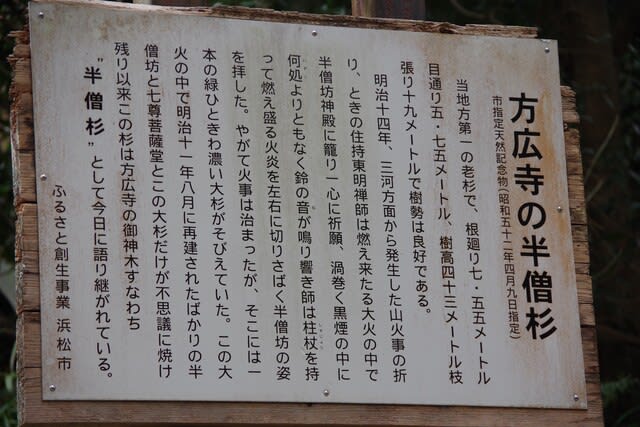 方広寺の半僧杉
市指定天然記念物(昭和五十二年四月九日指定)
当地方第一の老杉で、根廻り七・五五メートル
目通り五・七五メートル、樹高四十三メートル枝
張り十九メートルで樹勢は良好である。
明治十四年、三河方面から発生した山火事の折
り、ときの住持東明禅師は燃え来たる大火の中で
半僧坊神殿に籠り一心に祈願、渦巻く黒煙の中に
何処よりともなく鈴の音が鳴り響き師は柱杖を持
って燃え盛る火炎を左右に切りさばく半僧坊の姿
を拝した。やがて火事は治まったが、そこには一
本の緑ひときわ濃い大杉がそびえていた。この大
火の中で明治十一年八月に再建されたばかりの半
僧坊と七尊菩薩堂とこの大杉だけが不思議に焼け
残り以来この杉は方広寺の御神木すなわち
"半僧杉"として今日に語り継がれている。
ふるさと創生事業 浜松市